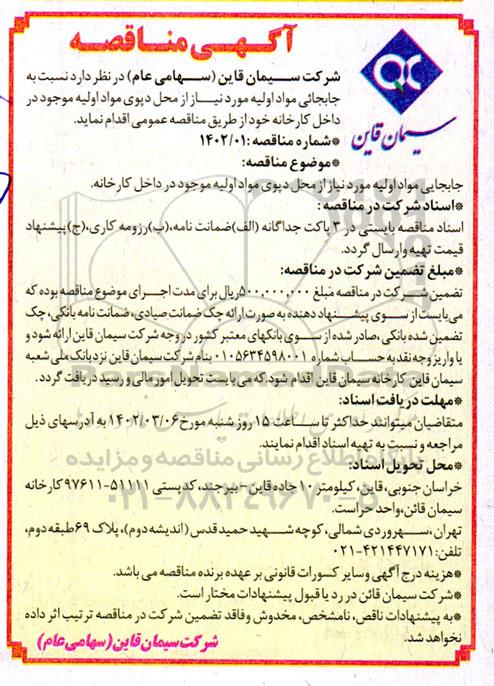 آگهی مناقصه
شرکت سیمان قاین (سهامی عام) در نظر دارد نسبت به
جابجائی مواد اولیه مورد نیاز از محل دپوی مواد اولیه موجود در
داخل کارخانه خود از طریق مناقصه عمومی اقدام نماید.
سیمان قاین
*شماره مناقصه: ۱۴۰۲/۰۱
*موضوع مناقصه:
جابجایی مواد اولیه مورد نیاز از محل دپوی مواد اولیه موجود در داخل کارخانه.
*اسناد شرکت در مناقصه:
اسناد مناقصه بایستی در ۳ پاکت جداگانه (الف)ضمانت نامه،(ب)رزومه کاری،(ج)پیشنهاد
قیمت تهیه و ارسال گردد.
*مبلغ تضمین شرکت در مناقصه:
تضمین شرکت در مناقصه مبلغ ۵۰۰,۰۰۰,۰۰۰ریال برای مدت اجرای موضوع مناقصه بوده که
می‌بایست از سوی پیشنهاد دهنده به صورت ارائه چک ضمانت صیادی، ضمانت نامه بانکی، چک
تضمین شده بانکی،صادر شده از سوی بانکهای معتبر کشور در وجه شرکت سیمان قاین ارائه شود و
یا واریز وجه نقد به حساب شماره ۰۱۰۵۶۳۴۵۹۸۰۰۱ بنام شرکت سیمان قاین نزد بانک ملی شعبه
سیمان قاین کارخانه سیمان قاین اقدام شود.که می بایست تحویل امور مالی و رسید دریافت گردد.
*مهلت دریافت اسناد:
متقاضیان میتوانند حداکثر تا ساعت ۱۵ روز شنبه مورخ ۱۴۰۲/۰۳/۰۶ به آدرسهای ذیل
مراجعه و نسبت به تهیه اسناد اقدام نمایند.
*محل تحویل اسناد:
خراسان جنوبی، قاین، کیلومتر ۱۰ جاده قاین – بیرجند، کدپستی ۵۱۱۱۱-۹۷۶۱۱ کارخانه
سیمان قائن،واحد حراست.
تهران ،سهروردی شمالی، کوچه شهید حمید قدس (اندیشه دوم)، پلاک ۶۹طبقه دوم،
تلفن: ۴۲۱۴۴۷۱۷۱-۰۲۱
*هزینه درج آگهی و سایر کسورات قانونی بر عهده برنده مناقصه می باشد.
*شرکت سیمان قائن در رد یا قبول پیشنهادات مختار است.
*به پیشنهادات ناقص، نامشخص، مخدوش و فاقد تضمین شرکت در مناقصه ترتیب اثر داده
نخواهد شد.
شرکت سیمان قاین (سهامی عام)
پایگاه اطلاع رسانی مناقصه و مزایده
۰۲۱-۸۸۳۴۹۶۷۰-۵